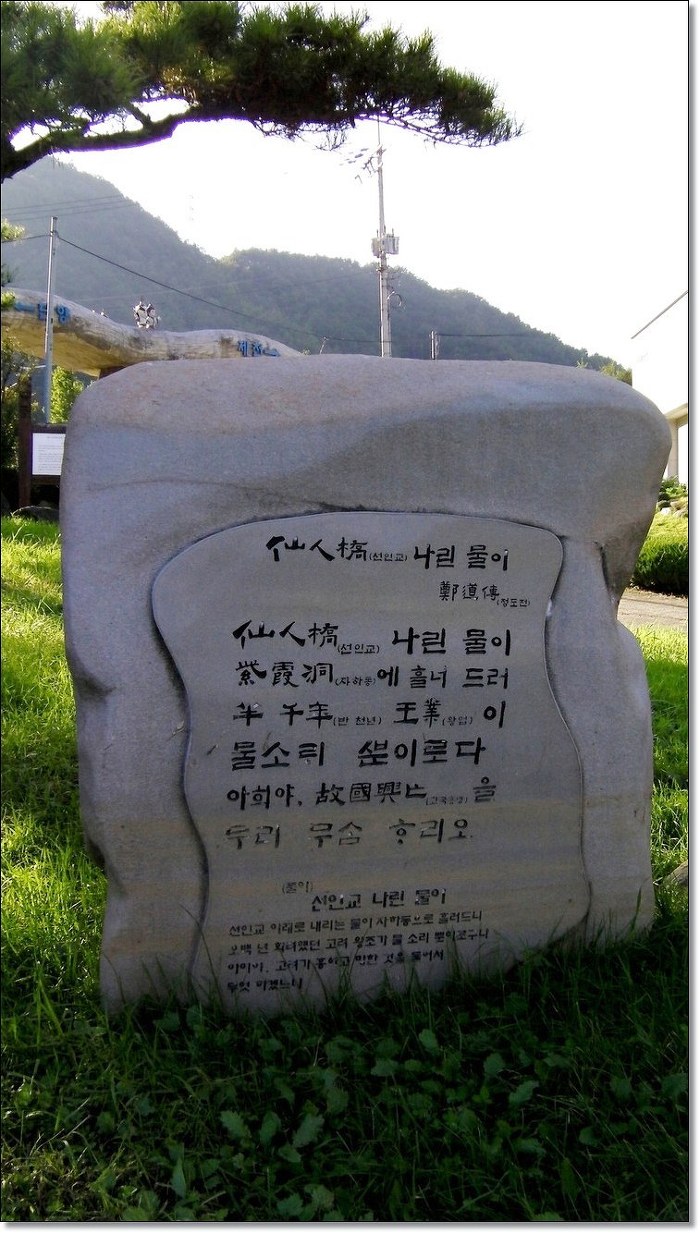 仙人橋(선인교) 나린 물이
鄭道傳(정도전)
仙人橋(선인교) 나린 물이
紫霞洞(자하동)에 흘너 드러
半千年(반 천년) 王業(왕업)이
물소리 뿐이로다
아희야, 故國興亡(고국흥망)을
무러 무ᄉᆞᆷ ᄒᆞ리오.
(풀이)
선인교 나린 물이
선인교 아래로 내리는 물이 자하동으로 흘러드니
오백 년 화려했던 고려 왕조가 물 소리 뿐이로구나
아이야, 고려가 흥하고 망한 것을 물어서
무엇 하겠느냐